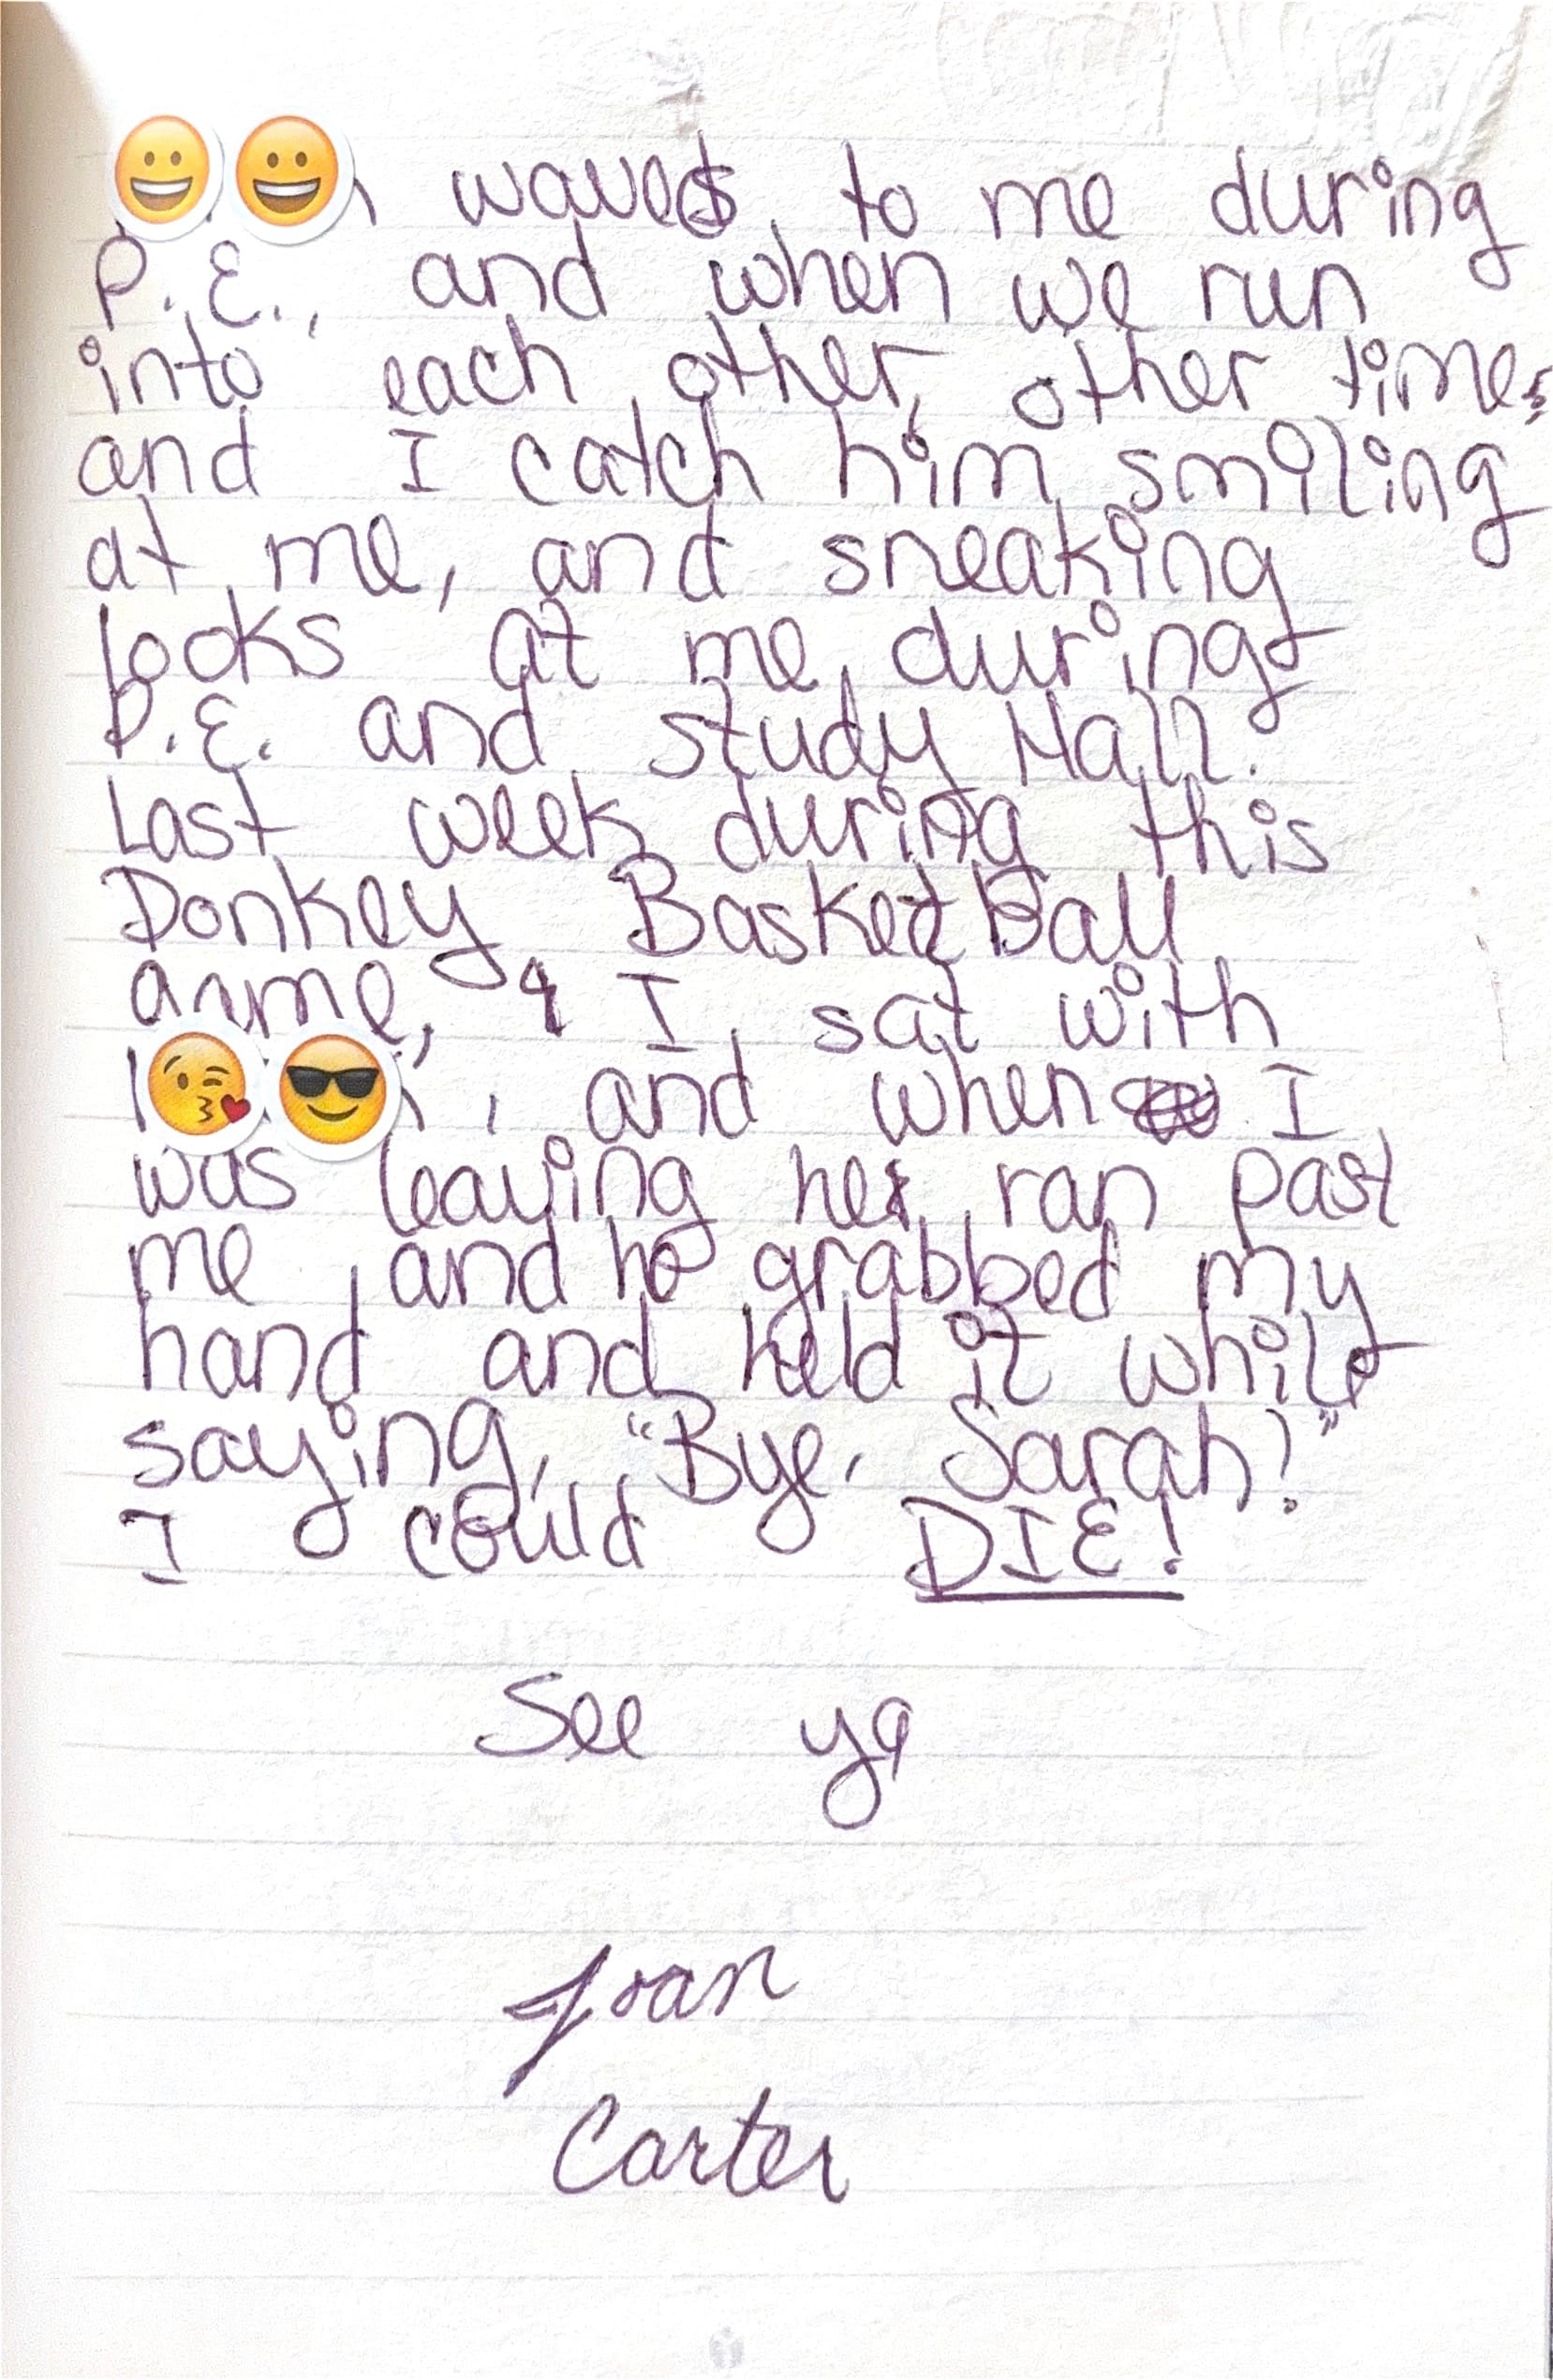 waves to me during
P.E., and when we run
into each other, other times
and I catch him smiling
at me, and sneaking
looks at me during
P.E. and study Hall.
Last week during this
Donkey BasketBall
I sat with
, and when I
was leaving he ran past
me and he grabbed my
hand and held it while
saying, "Bye, Sarah!"
I could DIE!
See ya
Joan
Carter